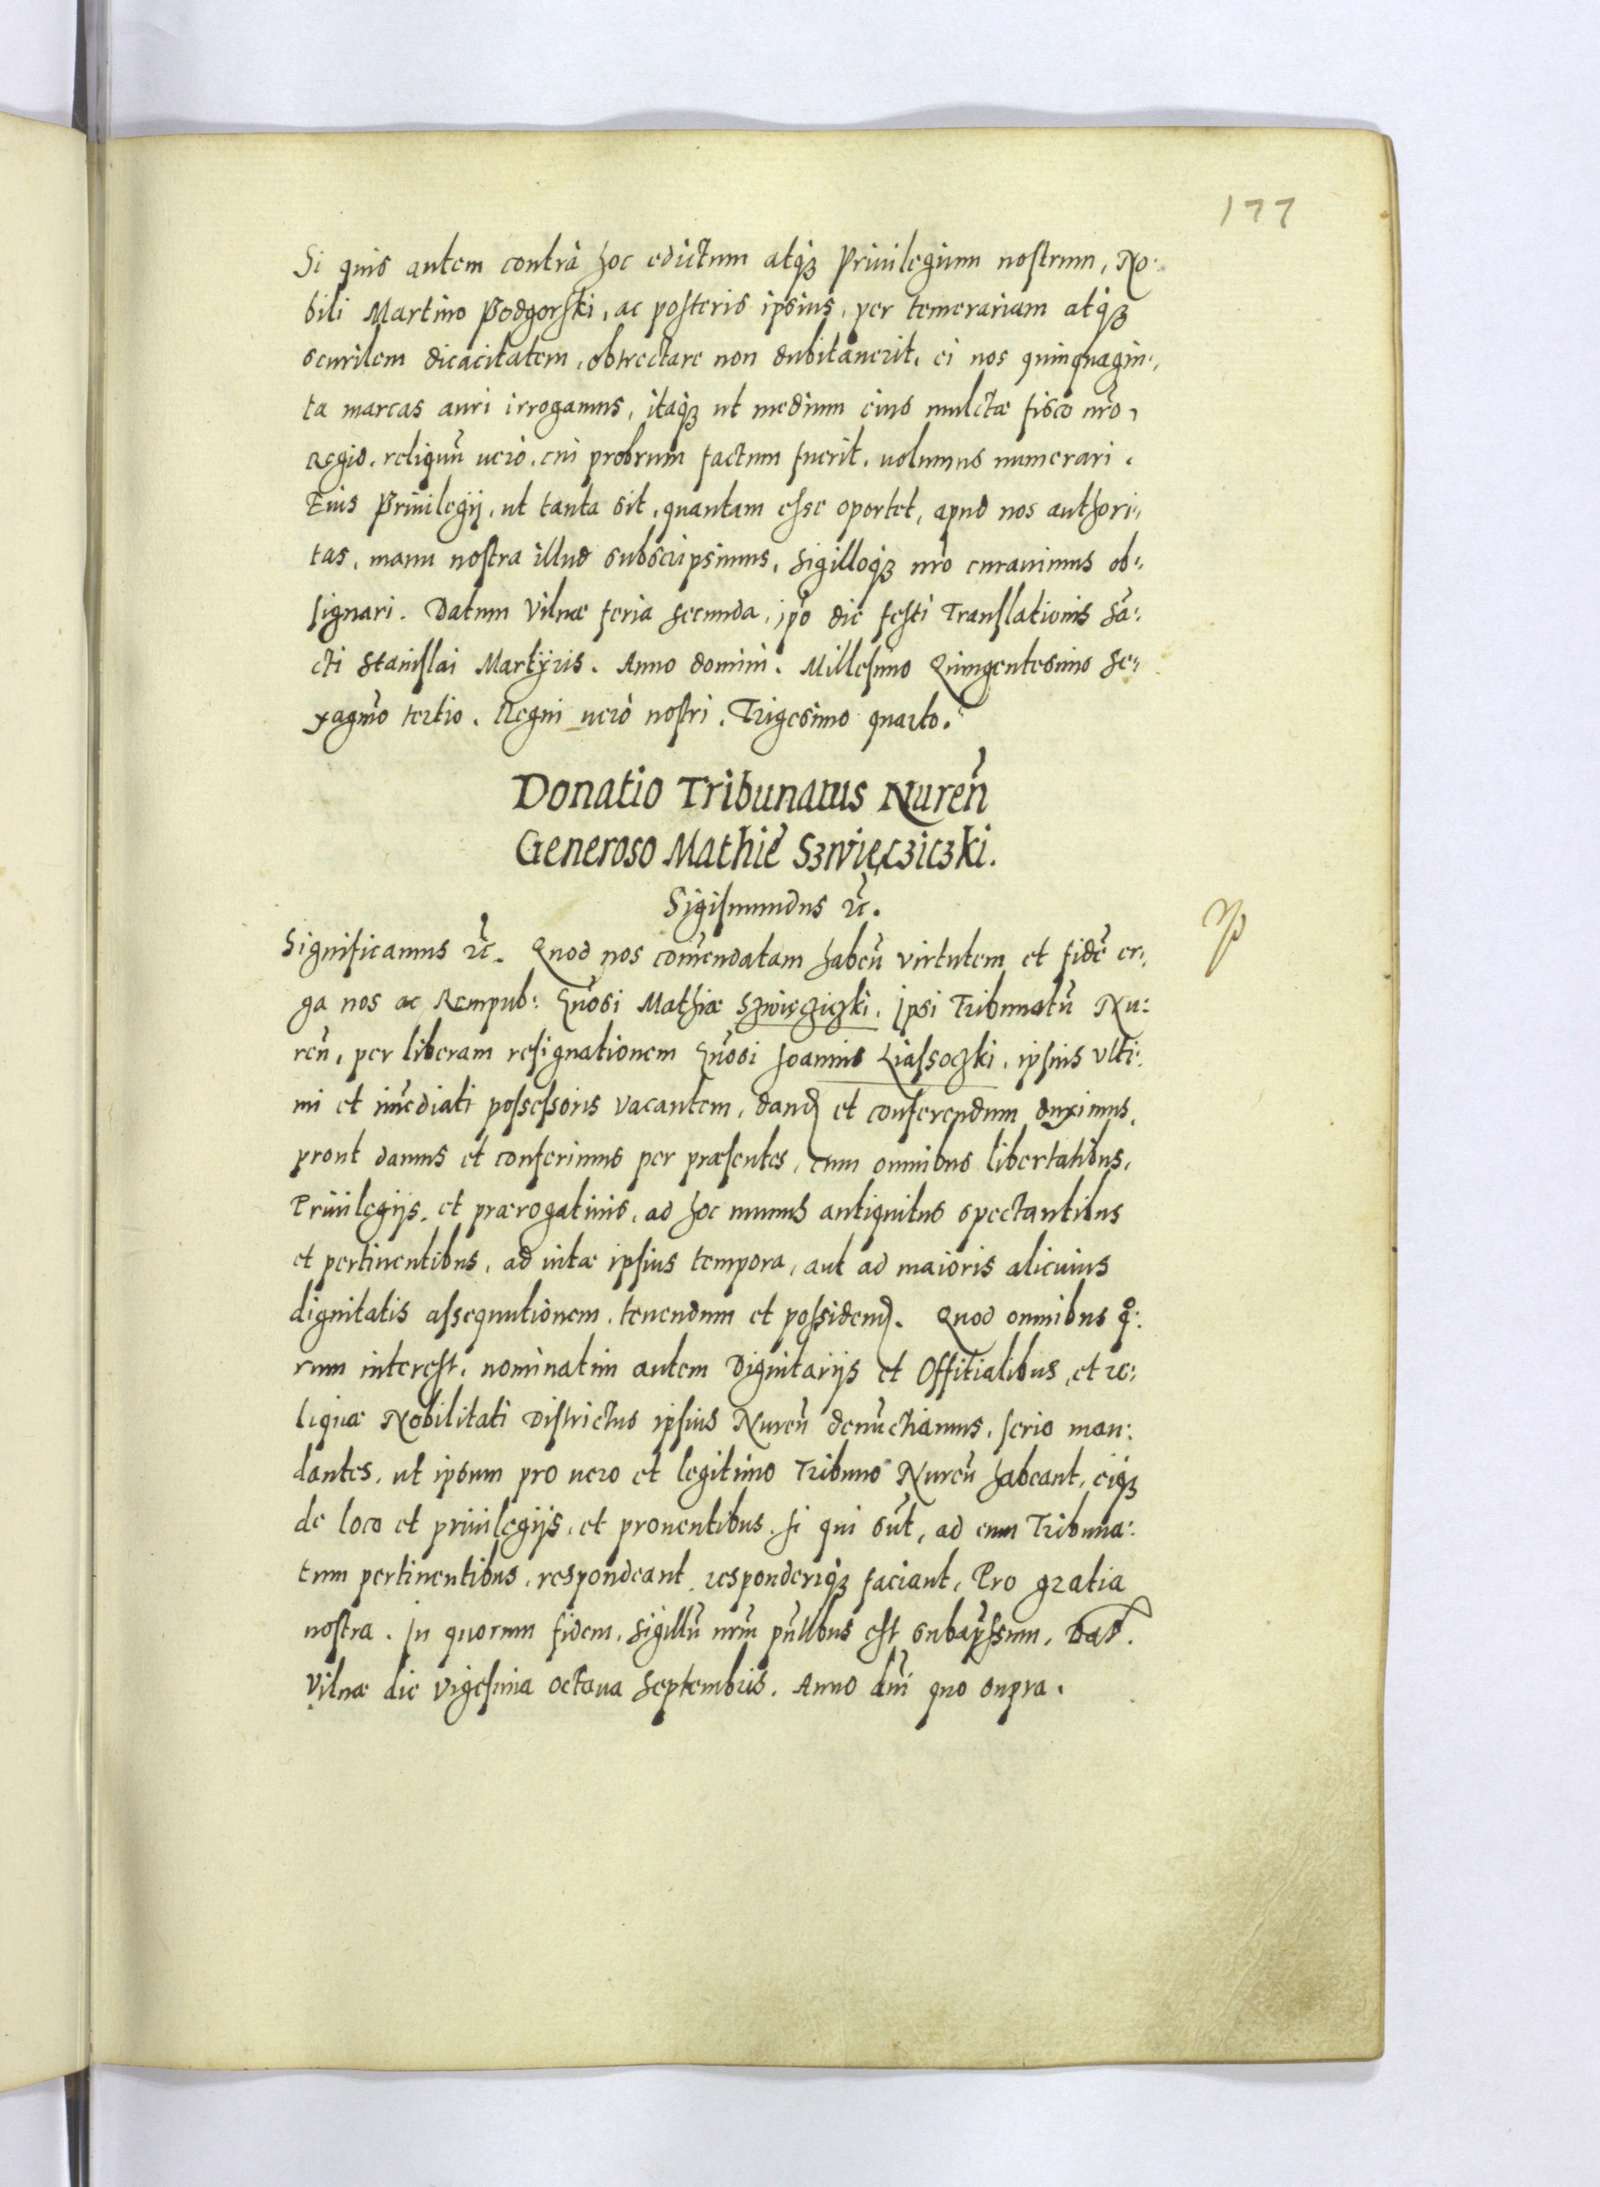 177
Si quis autem contrà hoc edictum atqꝫ Priuilegium nostrum, No:
bili Martino Podgorski, ac posteris ipsius, per temerariam atqꝫ
scurilem dicacitatem, obtrectare non dubitauerit, ei nos quinquagin:
ta marcas auri irrogamus, itaqꝫ ut medium eius mulctæ fisco nr̃o,
Regio, reliquũ uerò, cui probrum factum fuerit, uolumus numerari.
Eius Priuilegij, ut tanta sit, quantam esse oportet, apud nos authori:
tas, manu nostra illud subscripsimus, sigilloqꝫ nr̃o curauimus ob:
signari. Datum Vilnæ feria secunda, ip̃o die festi Translationis Sã:
cti Stanislai Martyris. Anno domini. Millesimo Quingentesimo Se:
xagm̃o tertio. Regni uerò nostri. Trigesimo quarto.
Donatio Tribunatus Nureñ
Generoso Mathiẽ Szwięcziczki.
Sigismundus ꝛc̃.
Significamus ꝛc̃. Quod nos com̃endatam habeñ virtutem et fidẽ er:
ga nos ac Rempub: Gñosi Mathiæ Szwięcziczki, Ipsi Tribunatũ Nu:
reñ, per liberam resignationem Gñosi Joannis Liassoczki, ipsius vlti:
mi et im̃ediati possessoris vacantem, dand et conferendum duximus,
prout damus et conferimus per præsentes, cum omnibus libertatibus,
Priuilegijs, et prærogatiuis, ad hoc munus antiquitus spectantibus
et pertinentibus, ad uitæ ipsius tempora, aut ad maioris alicuius
dignitatis assequutionem, tenendum et possidend. Quod omnibus qͦ:
rum interest, nominatim autem Dignitarijs et Offitialibus, et re:
liquæ Nobilitati Districtus ipsius Nureñ denũctiamus, serio man:
dantes, ut ipsum pro uero et legitimo Tribuno Nureñ habeant, eiqꝫ
de loco et priuilegijs, et prouentibus, si qui sũt, ad eum Tribuna:
tum pertinentibus, respondeant, responderiqꝫ faciant, Pro gratia
nostra. In quorum fidem, sigillũ nr̃m pñtibus est subap̃ssum, Dat.
Vilnæ die vigesima octaua Septembris. Anno dñi quo supra.